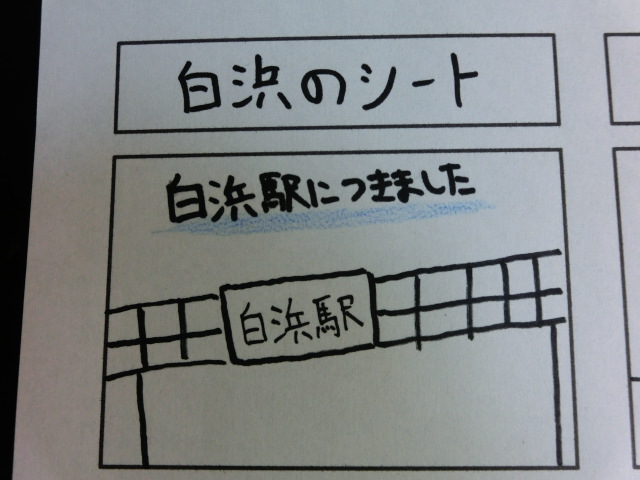 白浜のシート
白浜駅につきました
白浜駅